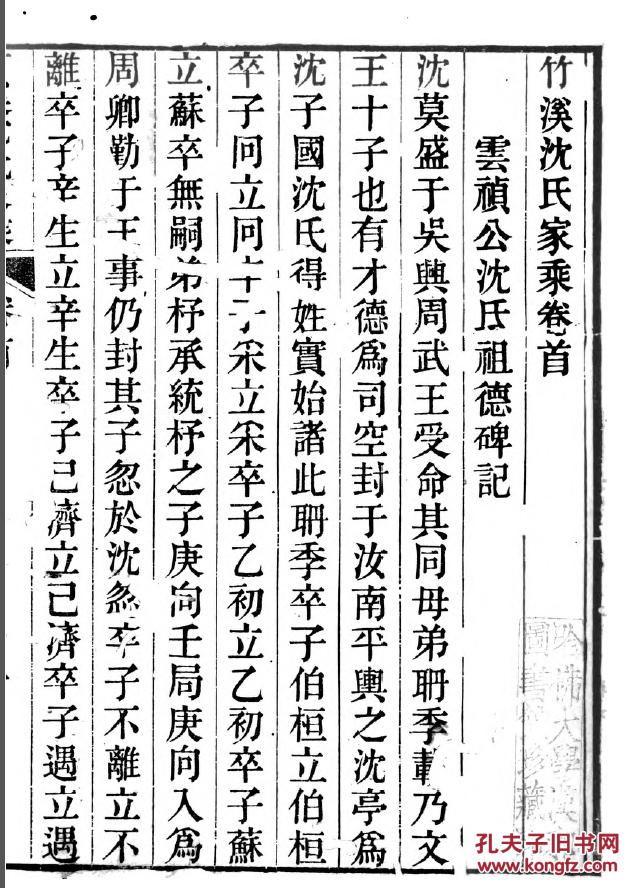 竹溪沈氏家乘卷首
雲禎公沈氏祖德碑記
沈莫盛于吳興周武王受命其同母弟聃季載乃文
王十子也有才德為司空封于汝南平輿之沈亭為
沈子國沈氏得姓實始諸此聃季卒子伯桓立伯桓
卒子冋立冋卒子釆立釆卒子乙初立乙初卒子蘇
立蘇卒無嗣弟杼承統杼之子庚向壬局庚向入為
周卿勤于王事仍封其子忽於沈忽卒子不離立不
離卒子辛生立辛生卒子己濟立己濟卒子遇立遇
卷首
哈佛大學
圖書 珍藏
孔夫子旧书网
www.kongfz.com